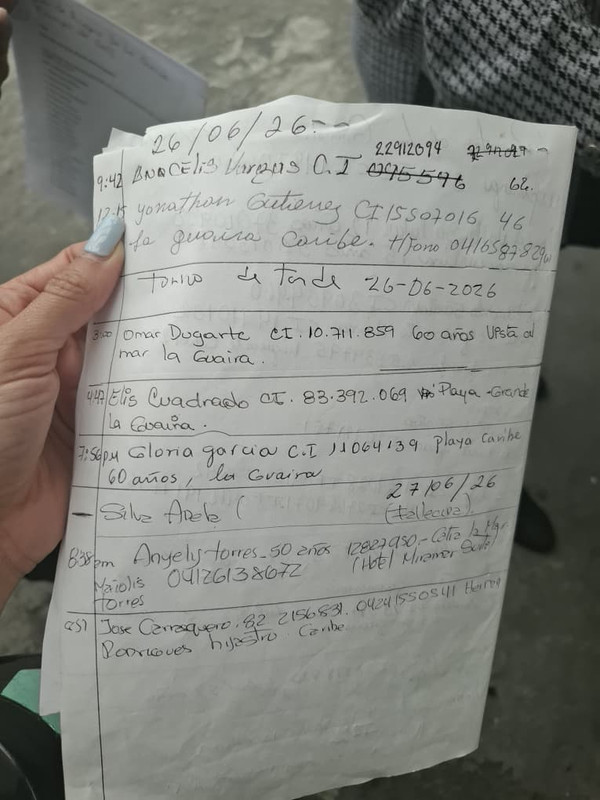 26/06/26.--
22912094
9:42 Vargas C.I 62.
12:15 Yonathan Gutierrez CI 15507016, 46
la guaira Caribe.
Turno de Tarde 26-06-2026
Omar Dugarte CI. 10.711.859 60 años Vista al
mar la Guaira.
4:47 Elis Cuadrado CI. 83.392.069 Playa Grande
La Guaira.
7:56 pm Gloria garcia C.I 11064139 playa caribe
60 años, la Guaira
27/06/26
— Silva (Fallecida).
8:38 pm Angelis torres - 50 años 12827950 - Catia la Mar
Torres 04126138672 (Hotel Miramar Suite)
Jose Carrasquero. 82 04241550541
hijastro Caribe